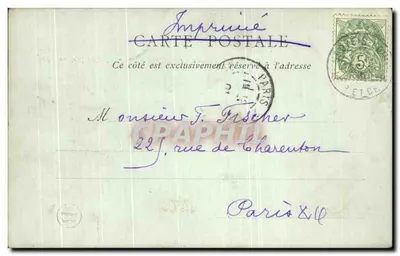 Imprimé
CARTE POSTALE
Ce côté est exclusivement réservé à l'adresse
PARIS
5
Monsieur F. Fischer
225, rue de Charenton
CPAPHIL
Paris